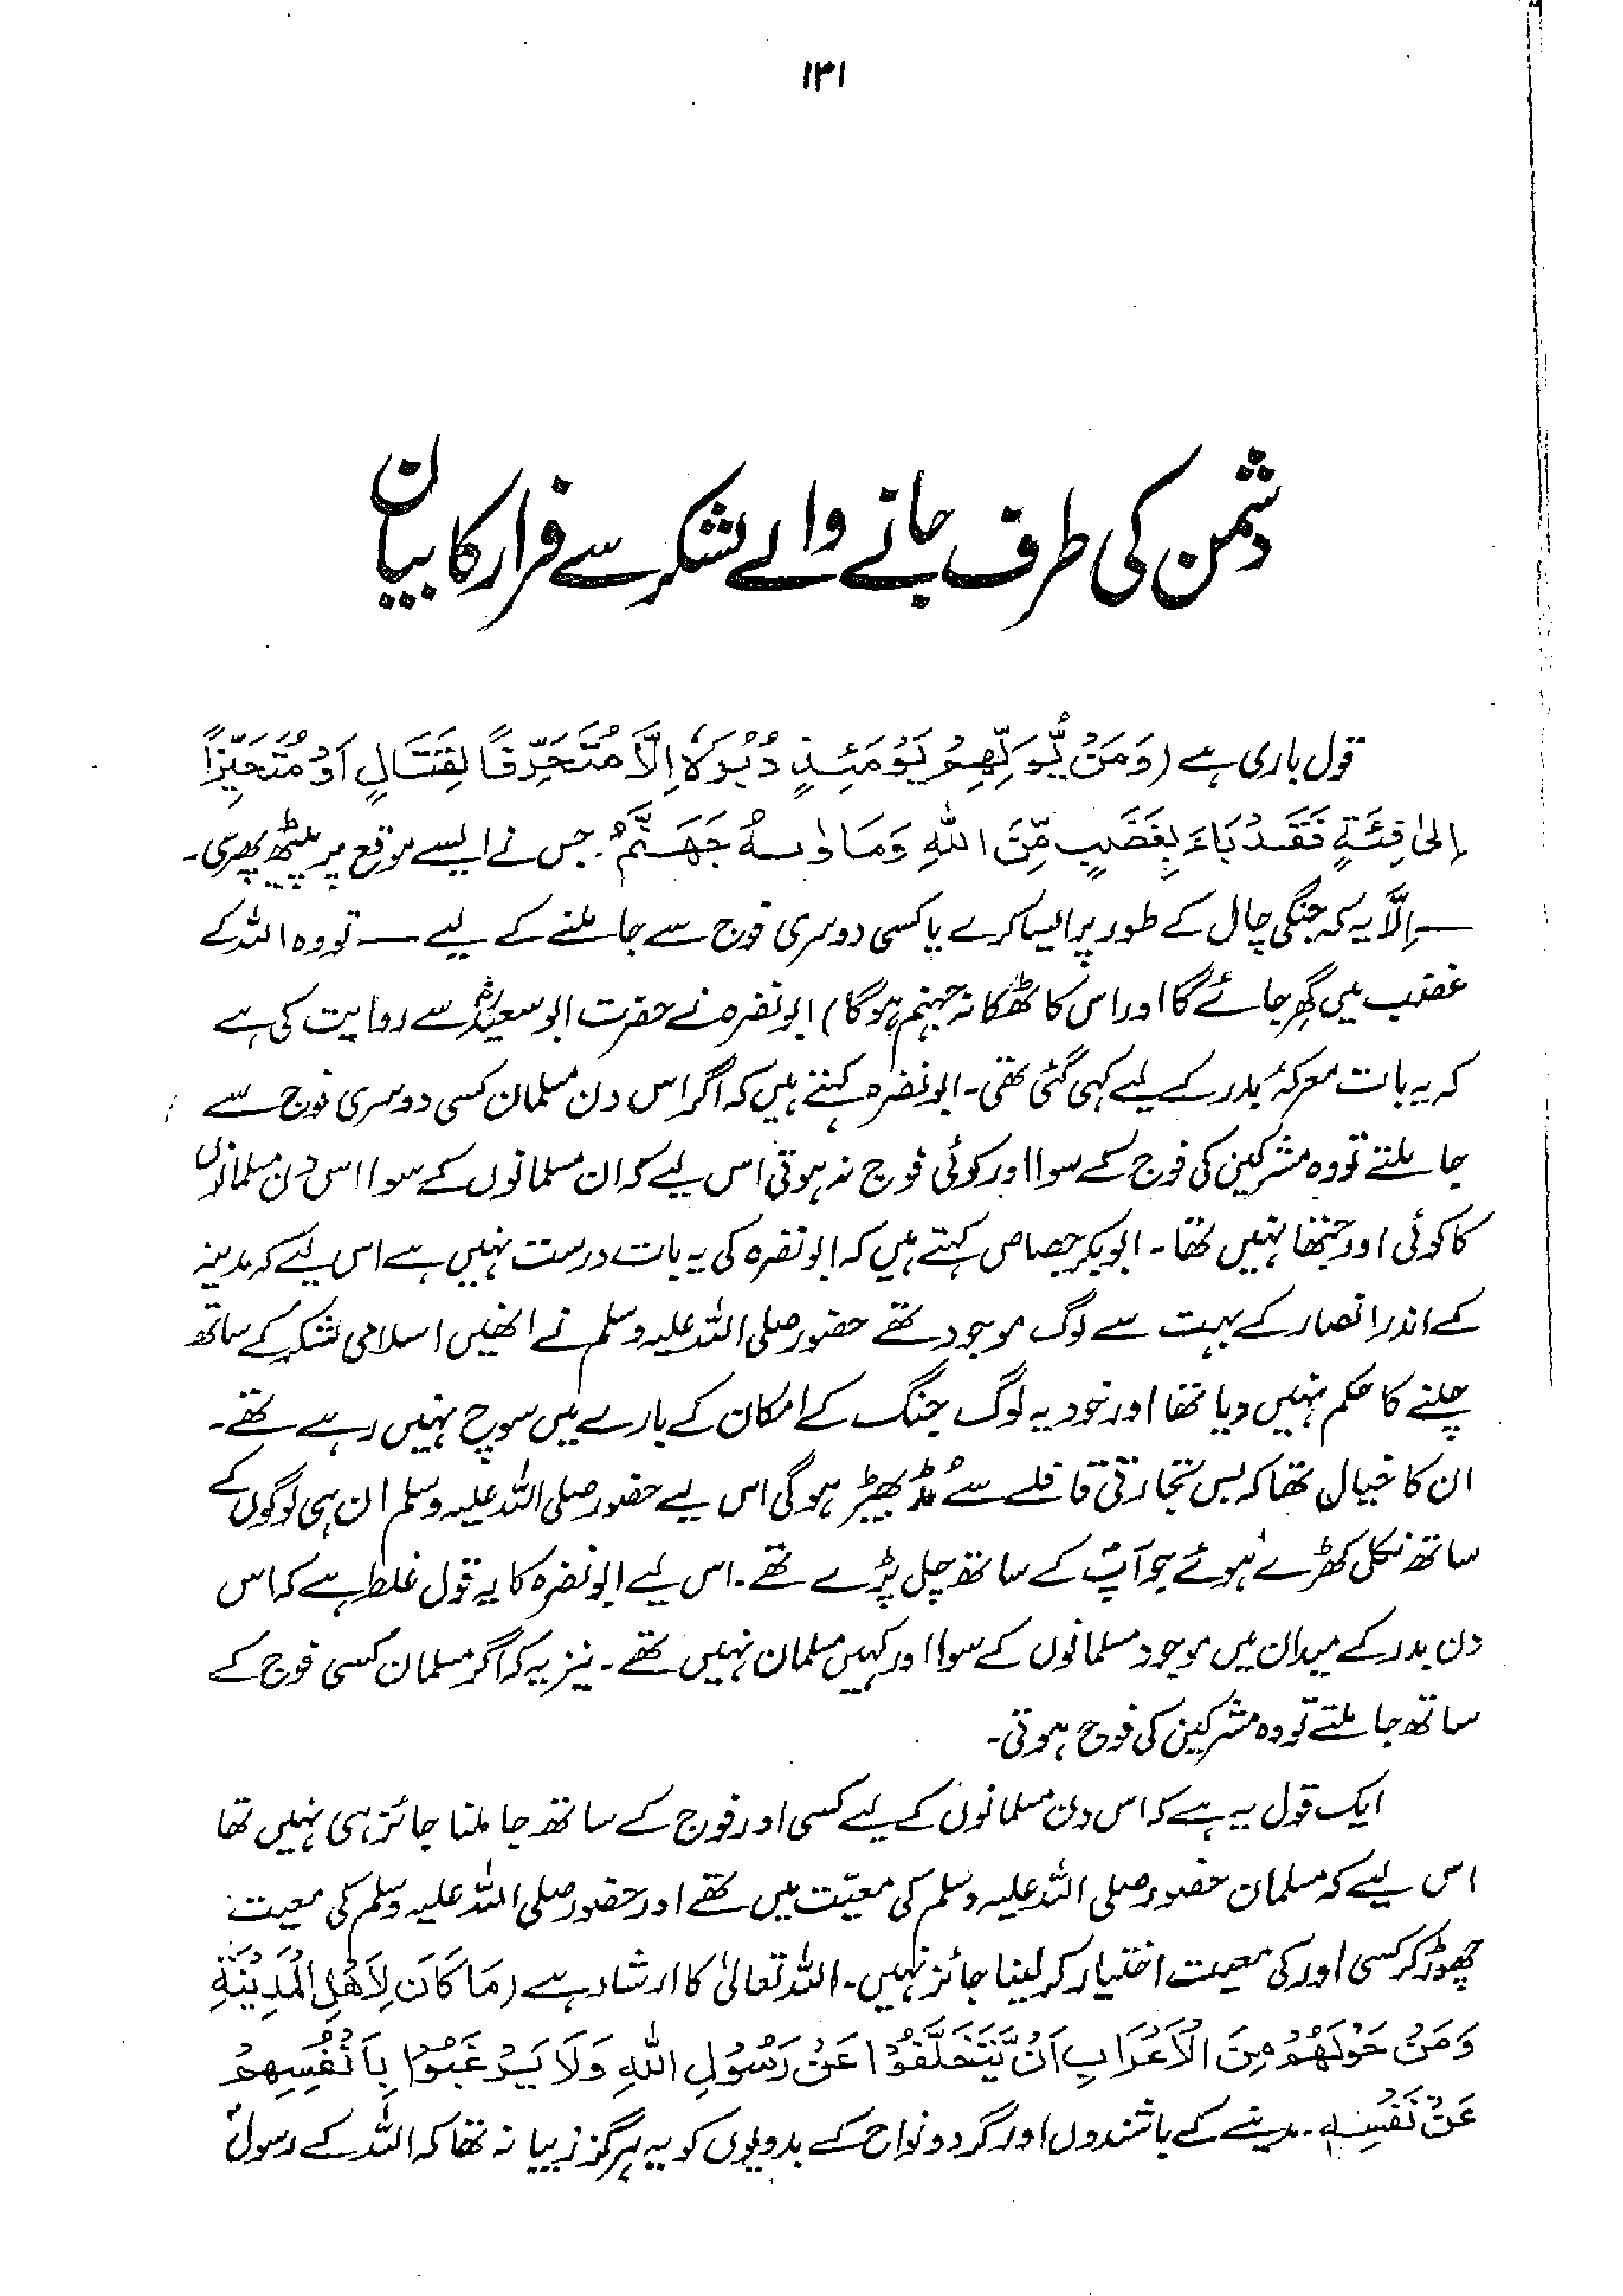 ۱۳۱
دشمن کی طرف جانے والے لشکر سے فرار کا بیان
قول باری ہے (وَمَنْ يُّوَلِّهِمْ يَوْمَئِذٍ دُبُرَهٗ اِلَّا مُتَحَرِّفًا لِقِتَالٍ اَوْ مُتَحَيِّزًا
اِلىٰ فِئَةٍ فَقَدْ بَاءَ بِغَضَبٍ مِّنَ اللّٰهِ وَمَاْوٰىهُ جَهَنَّمُ. جس نے ایسے موقع پر پیٹھ پھیری۔
— اِلَّا یہ کہ جنگی چال کے طور پر ایسا کرے یا کسی دوسری فوج سے جا ملنے کے لیے — تو وہ اللہ کے
غضب میں گِھر جائے گا اور اس کا ٹھکانہ جہنم ہوگا) ابونضرہ نے حضرت ابوسعیدؓ سے روایت کی ہے
کہ یہ بات معرکۂ بدر کے لیے کہی گئی تھی۔ ابونضرہ کہتے ہیں کہ اگر اس دن مسلمان کسی دوسری فوج سے
جا ملتے تو وہ مشرکین کی فوج کے سوا اور کوئی فوج نہ ہوتی اس لیے کہ ان مسلمانوں کے سوا اس دن مسلمانوں
کا کوئی اور جتھا نہیں تھا۔ ابوبکر جصاص کہتے ہیں کہ ابونضرہ کی یہ بات درست نہیں ہے اس لیے کہ مدینہ
کے اندر انصار کے بہت سے لوگ موجود تھے حضور صلی اللہ علیہ وسلم نے انھیں اسلامی لشکر کے ساتھ
چلنے کا حکم نہیں دیا تھا اور خود یہ لوگ جنگ کے امکان کے بارے میں سوچ نہیں رہے تھے۔
ان کا خیال تھا کہ بس تجارتی قافلے سے مُڈبھیڑ ہوگی اس لیے حضور صلی اللہ علیہ وسلم ان ہی لوگوں کے
ساتھ نکل کھڑے ہوئے جو آپؐ کے ساتھ چل پڑے تھے۔ اس لیے ابونضرہ کا یہ قول غلط ہے کہ اس
دن بدر کے میدان میں موجود مسلمانوں کے سوا اور کہیں مسلمان نہیں تھے۔ نیز یہ کہ اگر مسلمان کسی فوج کے
ساتھ جا ملتے تو وہ مشرکین کی فوج ہوتی۔
ایک قول یہ ہے کہ اس دن مسلمانوں کے لیے کسی اور فوج کے ساتھ جا ملنا جائز ہی نہیں تھا
اس لیے کہ مسلمان حضور صلی اللہ علیہ وسلم کی معیّت میں تھے اور حضور صلی اللہ علیہ وسلم کی معیت
چھوڑ کر کسی اور کی معیت اختیار کر لینا جائز نہیں۔ اللہ تعالیٰ کا ارشاد ہے (مَا كَانَ لِاَهْلِ الْمَدِيْنَةِ
وَمَنْ حَوْلَهُمْ مِنَ الْاَعْرَابِ اَنْ يَّتَخَلَّفُوْا عَنْ رَسُوْلِ اللّٰهِ وَلَا يَرْغَبُوْا بِاَنْفُسِهِمْ
عَنْ نَفْسِهٖ۔ مدینے کے باشندوں اور گرد و نواح کے بدویوں کو یہ ہرگز زیبا نہ تھا کہ اللہ کے رسولؐ